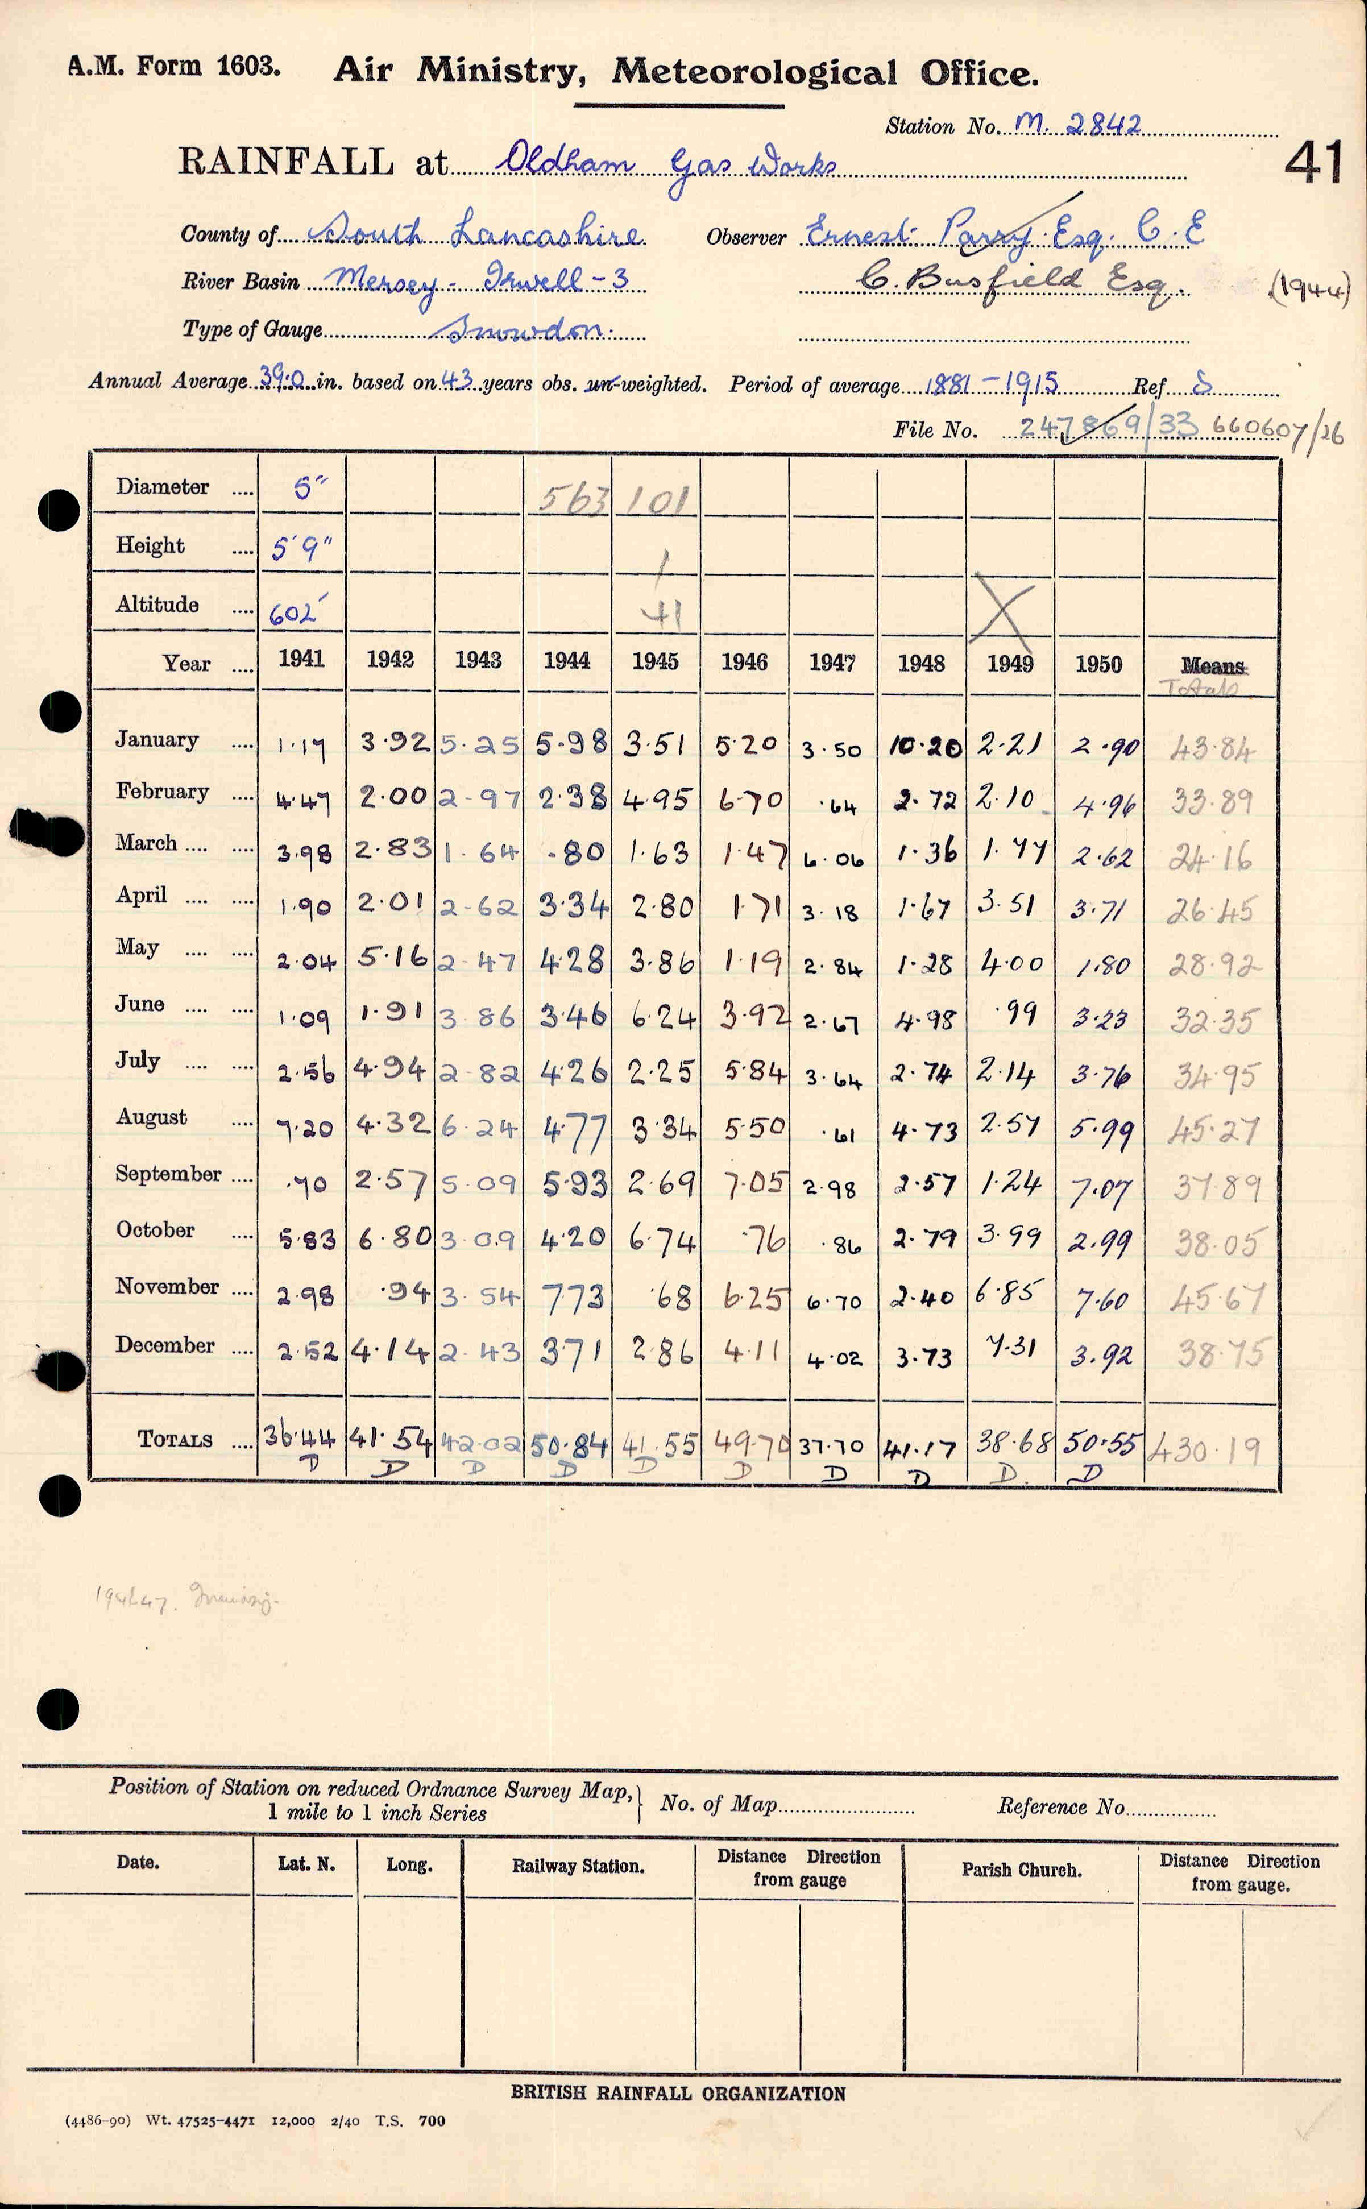 A.M. Form 1603. Air Ministry, Meteorological Office.
Station No. M. 2842
41
RAINFALL at Oldham Gas Works
County of South Lancashire Observer Ernest Parry Esq. C.E
River Basin Mersey - Irwell - 3 C. Busfield Esq. (1944)
Type of Gauge Snowdon.
Annual Average 39.0 in. based on 43 years obs. un-weighted. Period of average 1881-1915 Ref S
File No. 247869/33 660607/26
Diameter .... 5" 563 101
Height .... 5'9" 1
Altitude .... 602' 41
Year .... 1941 1942 1943 1944 1945 1946 1947 1948 1949 1950 Means
Totals
January .... 1.17 3.92 5.25 5.98 3.51 5.20 3.50 10.20 2.21 2.90 43.84
February .... 4.47 2.00 2.97 2.38 4.95 6.70 .64 2.72 2.10 4.96 33.89
March .... .... 3.98 2.83 1.64 .80 1.63 1.47 6.06 1.36 1.77 2.62 24.16
April .... .... 1.90 2.01 2.62 3.34 2.80 1.71 3.18 1.67 3.51 3.71 26.45
May .... .... 2.04 5.16 2.47 4.28 3.86 1.19 2.84 1.28 4.00 1.80 28.92
June .... .... 1.09 1.91 3.86 3.46 6.24 3.92 2.67 4.98 .99 3.23 32.35
July .... .... 2.56 4.94 2.82 4.26 2.25 5.84 3.64 2.74 2.14 3.76 34.95
August .... 7.20 4.32 6.24 4.77 3.34 5.50 .61 4.73 2.57 5.99 45.27
September .... .70 2.57 5.09 5.93 2.69 7.05 2.98 2.57 1.24 7.07 37.89
October .... 5.83 6.80 3.09 4.20 6.74 .76 .86 2.79 3.99 2.99 38.05
November .... 2.98 .94 3.54 7.73 .68 6.25 6.70 2.40 6.85 7.60 45.67
December .... 2.52 4.14 2.43 3.71 2.86 4.11 4.02 3.73 7.31 3.92 38.75
TOTALS .... 36.44 41.54 42.02 50.84 41.55 49.70 37.70 41.17 38.68 50.55 430.19
D D D D D D D D D. D
Position of Station on reduced Ordnance Survey Map, 1 mile to 1 inch Series } No. of Map Reference No.
Date. Lat. N. Long. Railway Station. Distance Direction from gauge Parish Church. Distance Direction from gauge.
BRITISH RAINFALL ORGANIZATION
(4486-90) Wt. 47525-4471 12,000 2/40 T.S. 700